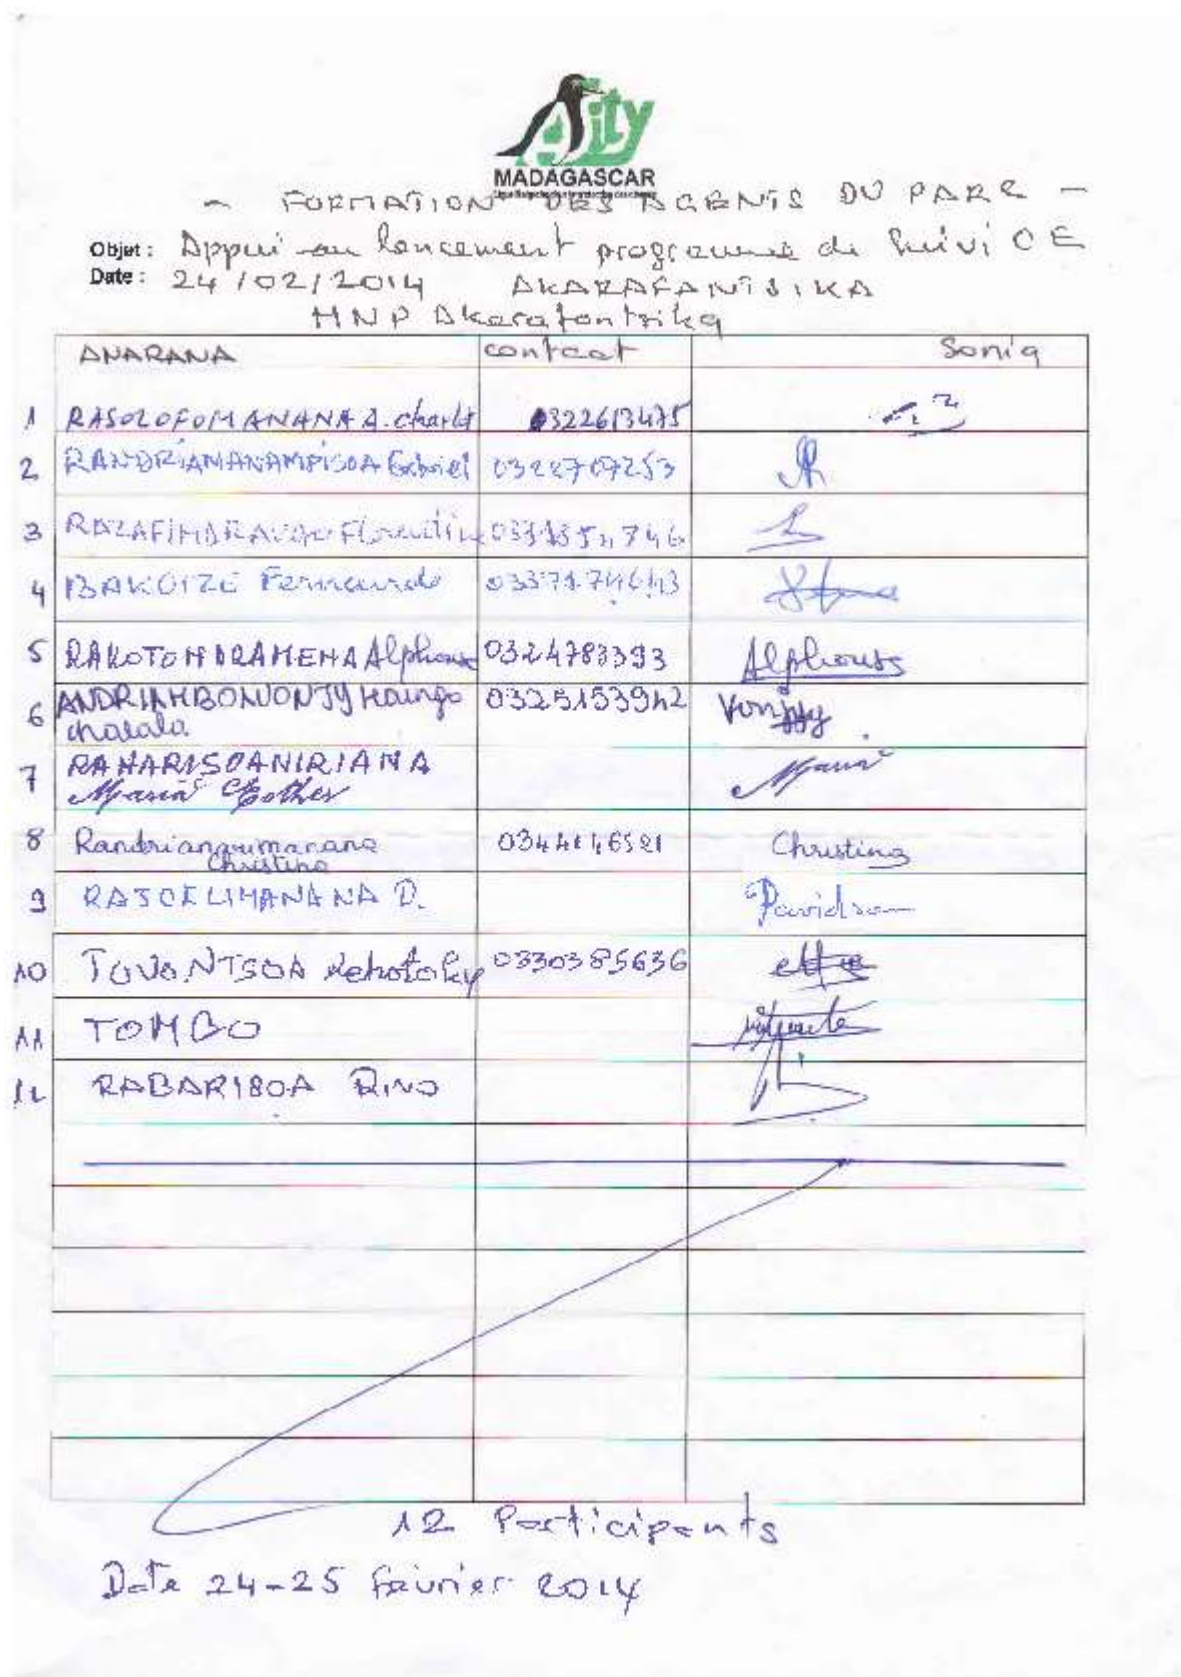 Asity
MADAGASCAR
- FORMATION DES AGENTS DU PARC -
Objet : Appui au lancement programme de Suivi CE
Date : 24/02/2014 AKARAFANTSIKA
MNP Akarafantsika
ANARANA contact Sonia
1 RASOLOFOMANANA A. Charles 0322613475
2 RANDRIAMANAMPISOA Gabriel 0322707253
3 RAZAFIMDRAVAO
4 BAKOIZE Fernando
5 RAKOTONDRAMENA Alphonse 0324783393 Alphonse
6 ANDRIAMBONVONJY Haingo 0325153942 Vonjy
Chalala
7 RAHARISOANIRIANA Maria
Maria Esther
8 Randrianarimanana Christina
Christina
9 RAJOELIMANANA D. Davidson
10 TOVONTSOA 0330385636
11 TOMBO
12 RABARISOA RINO
12 Participants
Date 24-25 Février 2014